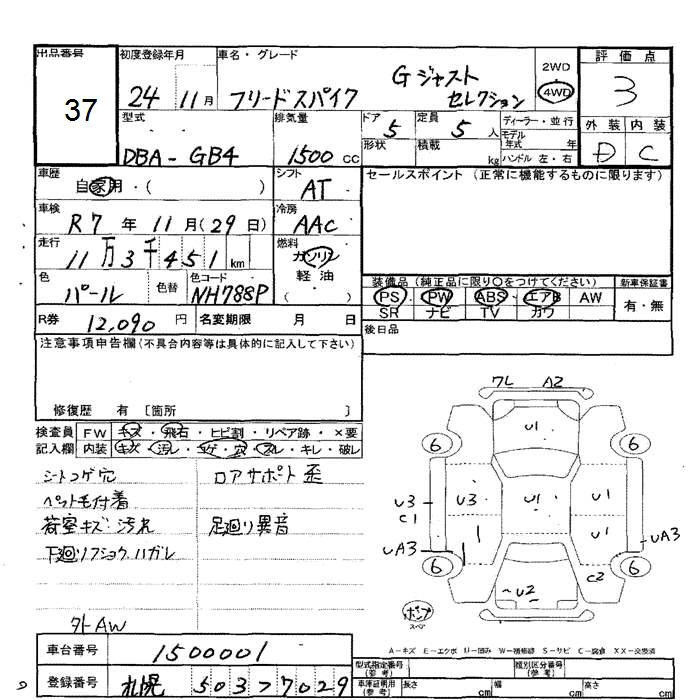 出品番号
37
初度登録年月
24 11月
車名・グレード
フリードスパイク
Gジャスト
セレクション
2WD
4WD
評価点
3
外装 内装
D C
型式
DBA-GB4
排気量
1500 cc
ドア
5
定員
5 人
形状
積載
kg
ディーラー・並行
モデル年式 年
ハンドル 左・右
車歴
自家用・( )
シフト
AT
セールスポイント (正常に機能するものに限ります)
車検
R7 年 11月(29日)
冷房
AAC
走行
11万3千451 km
燃料
ガソリン
軽油
( )
色
パール
色替
色コード
NH788P
装備品(純正品に限り○をつけてください)
新車保証書
PS PW ABS エアB AW
SR ナビ TV カワ
有・無
R券 12,090 円
名変期限 月 日
後日品
注意事項申告欄(不具合内容等は具体的に記入して下さい)
修復歴 有 〔箇所 〕
検査員記入欄
FW キズ・飛石・ヒビ割・リペア跡・×要
内装 キズ・汚レ・コゲ・穴・スレ・キレ・破レ
シートコゲ穴
ペット毛付着
荷室キズ・汚れ
下廻りフショク・ハガレ
外AW
ロアサポート 歪
足廻り異音
ワレ A2
U1
6
6
U3
C1
U3
U1
U1
U1
UA3
UA3
6
6
C2
~U2
ポンプ
スペア
A-キズ E-エクボ U-凹み W-補修跡 S-サビ C-腐食 XX-交換済
車台番号
1500001
登録番号
札幌 503 ワ 7029
型式指定番号
(参考)
種別区分番号
(参考)
車庫証明用
(参考)
長さ cm
幅 cm
高さ cm